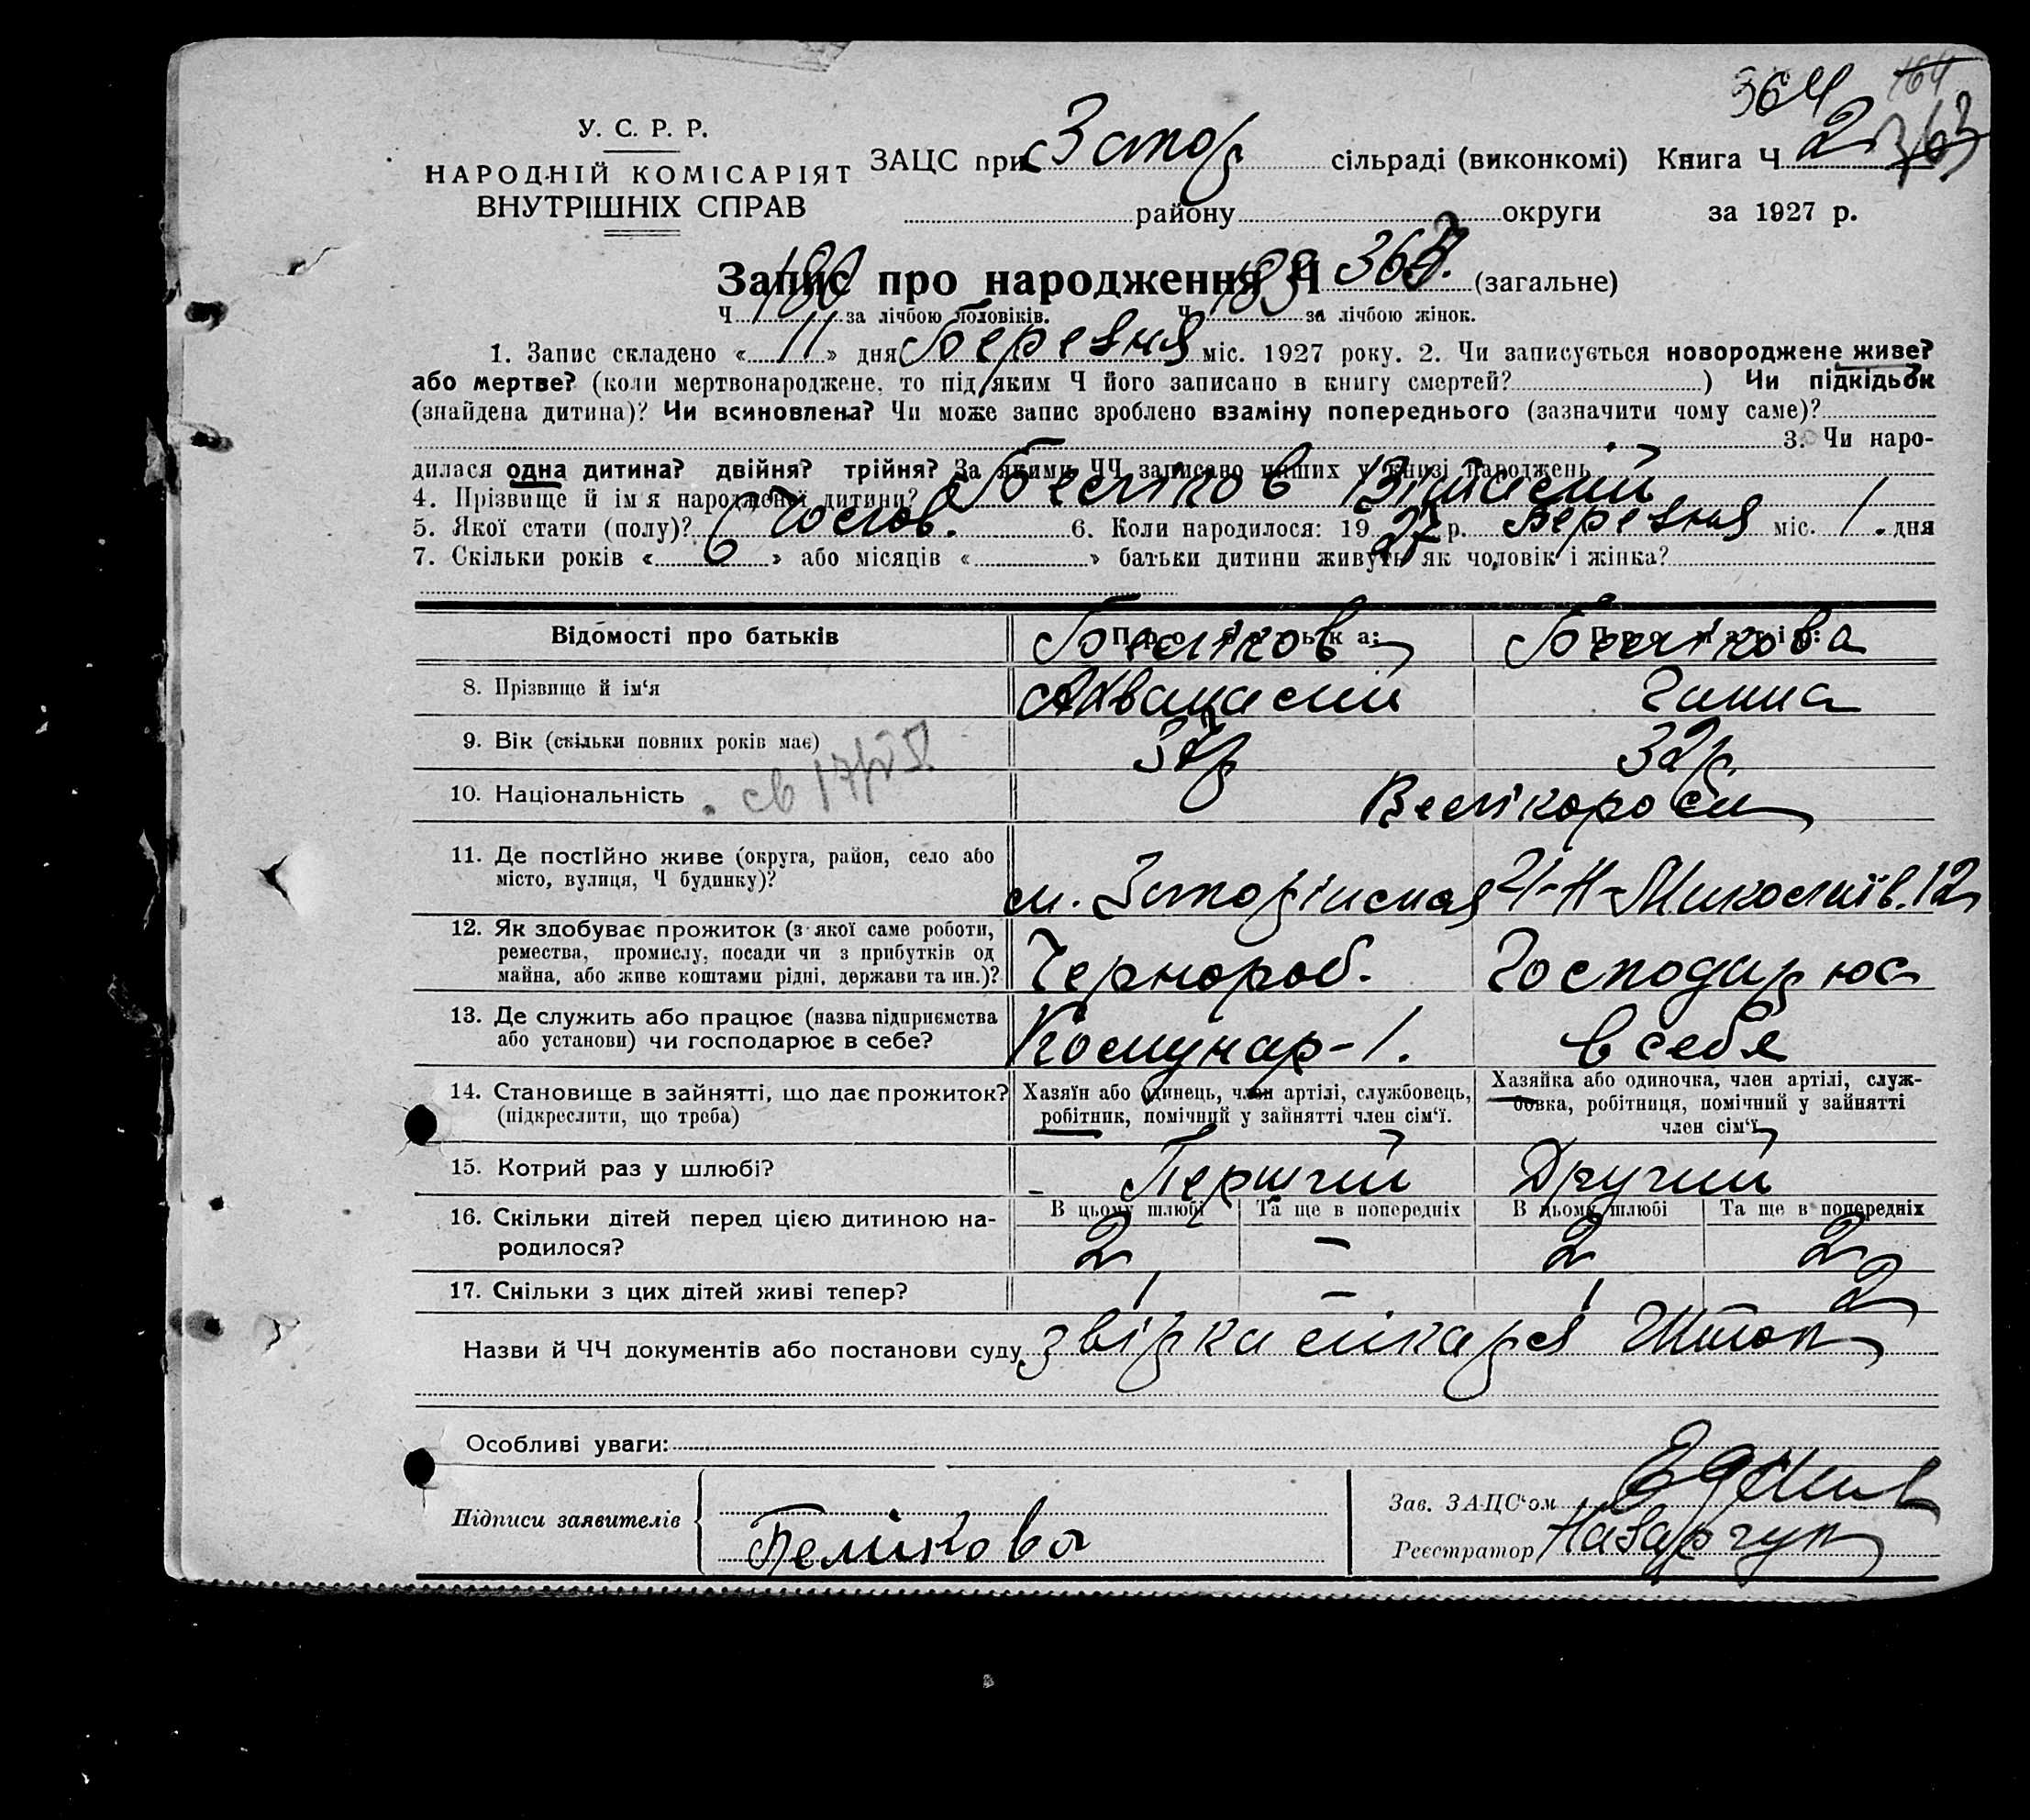 364 164
У. С. Р. Р.
НАРОДНІЙ КОМІСАРІЯТ
ВНУТРІШНІХ СПРАВ
ЗАЦС при Запор сільраді (виконкомі) Книга Ч 2 363
району округи за 1927 р.
Запис про народження Ч 363. (загальне)
Ч 180 за лічбою чоловіків. Ч 183 за лічбою жінок.
1. Запис складено « 11 » дня Березня міс. 1927 року. 2. Чи записується новороджене живе?
або мертве? (коли мертвонароджене, то під яким Ч його записано в книгу смертей? ) Чи підкідьок
(знайдена дитина)? Чи всиновлена? Чи може запис зроблено взаміну попереднього (зазначити чому саме)?
3. Чи наро-
дилася одна дитина? двійня? трійня? За якими ЧЧ записано инших у книзі народжень
4. Прізвище й ім'я народженої дитини? Беліков Віталій
5. Якої стати (полу)? Чолов. 6. Коли народилося: 19 27 р. Березня міс. 1. дня
7. Скільки років « 6 » або місяців « » батьки дитини живуть як чоловік і жінка?
Відомості про батьків Про батька: Про матір:
Беліков Белікова
8. Прізвище й ім'я Ахванасий Ганна
9. Вік (скільки повних років має) 37р 32р.
10. Національність Велікороси
11. Де постійно живе (округа, район, село або
місто, вулиця, Ч будинку)?
12. Як здобуває прожиток (з якої саме роботи,
ремества, промислу, посади чи з прибутків од
майна, або живе коштами рідні, держави та ин.)? Чернороб. Господарює
13. Де служить або працює (назва підприємства
або установи) чи господарює в себе? Комунар-1. в себе
14. Становище в зайнятті, що дає прожиток?
(підкреслити, що треба)
Хазяїн або одинець, член артілі, службовець,
робітник, помічний у зайнятті член сім'ї.
Хазяйка або одиночка, член артілі, служ-
бовка, робітниця, помічний у зайнятті
член сім'ї
15. Котрий раз у шлюбі? - Перший Другий
В цьому шлюбі Та ще в попередніх В цьому шлюбі Та ще в попередніх
16. Скільки дітей перед цією дитиною на-
родилося? 2 - 2 2
17. Скільки з цих дітей живі тепер? 1 - 1 2
Назви й ЧЧ документів або постанови суду звірка лікаря
Особливі уваги:
Підписи заявителів Белікова
Зав. ЗАЦС'ом
Реєстратор Назарчук